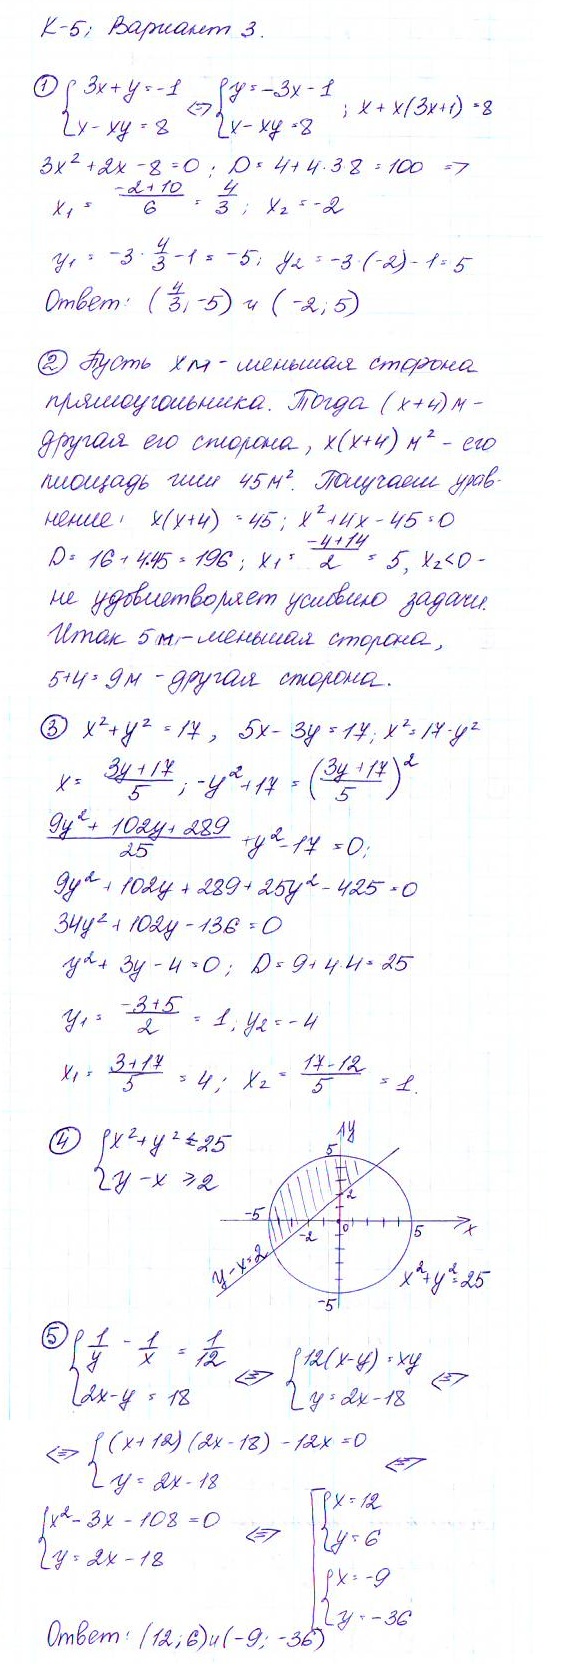 К-5; Вариант 3.
① { 3x+y=-1 ⇔ { y=-3x-1 ; x+x(3x+1)=8
x-xy=8 x-xy=8
3x²+2x-8=0; D=4+4·3·8=100 ⇒
x₁ = (-2+10)/6 = 4/3; x₂=-2
y₁ = -3·4/3-1=-5; y₂=-3·(-2)-1=5
Ответ: (4/3; -5) и (-2; 5)
② Пусть x м - меньшая сторона
прямоугольника. Тогда (x+4) м -
другая его сторона, x(x+4) м² - его
площадь или 45 м². Получаем урав-
нение: x(x+4)=45; x²+4x-45=0
D=16+4·45=196; x₁=(-4+14)/2=5, x₂<0 -
не удовлетворяет условию задачи.
Итак 5 м - меньшая сторона,
5+4=9 м - другая сторона.
③ x²+y²=17, 5x-3y=17; x²=17-y²
x=(3y+17)/5; -y²+17=((3y+17)/5)²
(9y²+102y+289)/25 +y²-17=0;
9y²+102y+289+25y²-425=0
34y²+102y-136=0
y²+3y-4=0; D=9+4·4=25
y₁=(-3+5)/2=1; y₂=-4
x₁=(3+17)/5=4; x₂=(17-12)/5=1.
④ { x²+y²≤25
y-x≥2
y
5
2
-5 -2 0 5 x
y-x=2
x²+y²=25
-5
⑤ { 1/y - 1/x = 1/12 ⇔ { 12(x-y)=xy ⇔
2x-y=18 y=2x-18
⇔ { (x+12)(2x-18)-12x=0 ⇔
y=2x-18
{ x²-3x-108=0 ⇔ [ { x=12
y=2x-18 y=6
{ x=-9
y=-36
Ответ: (12; 6) и (-9; -36)